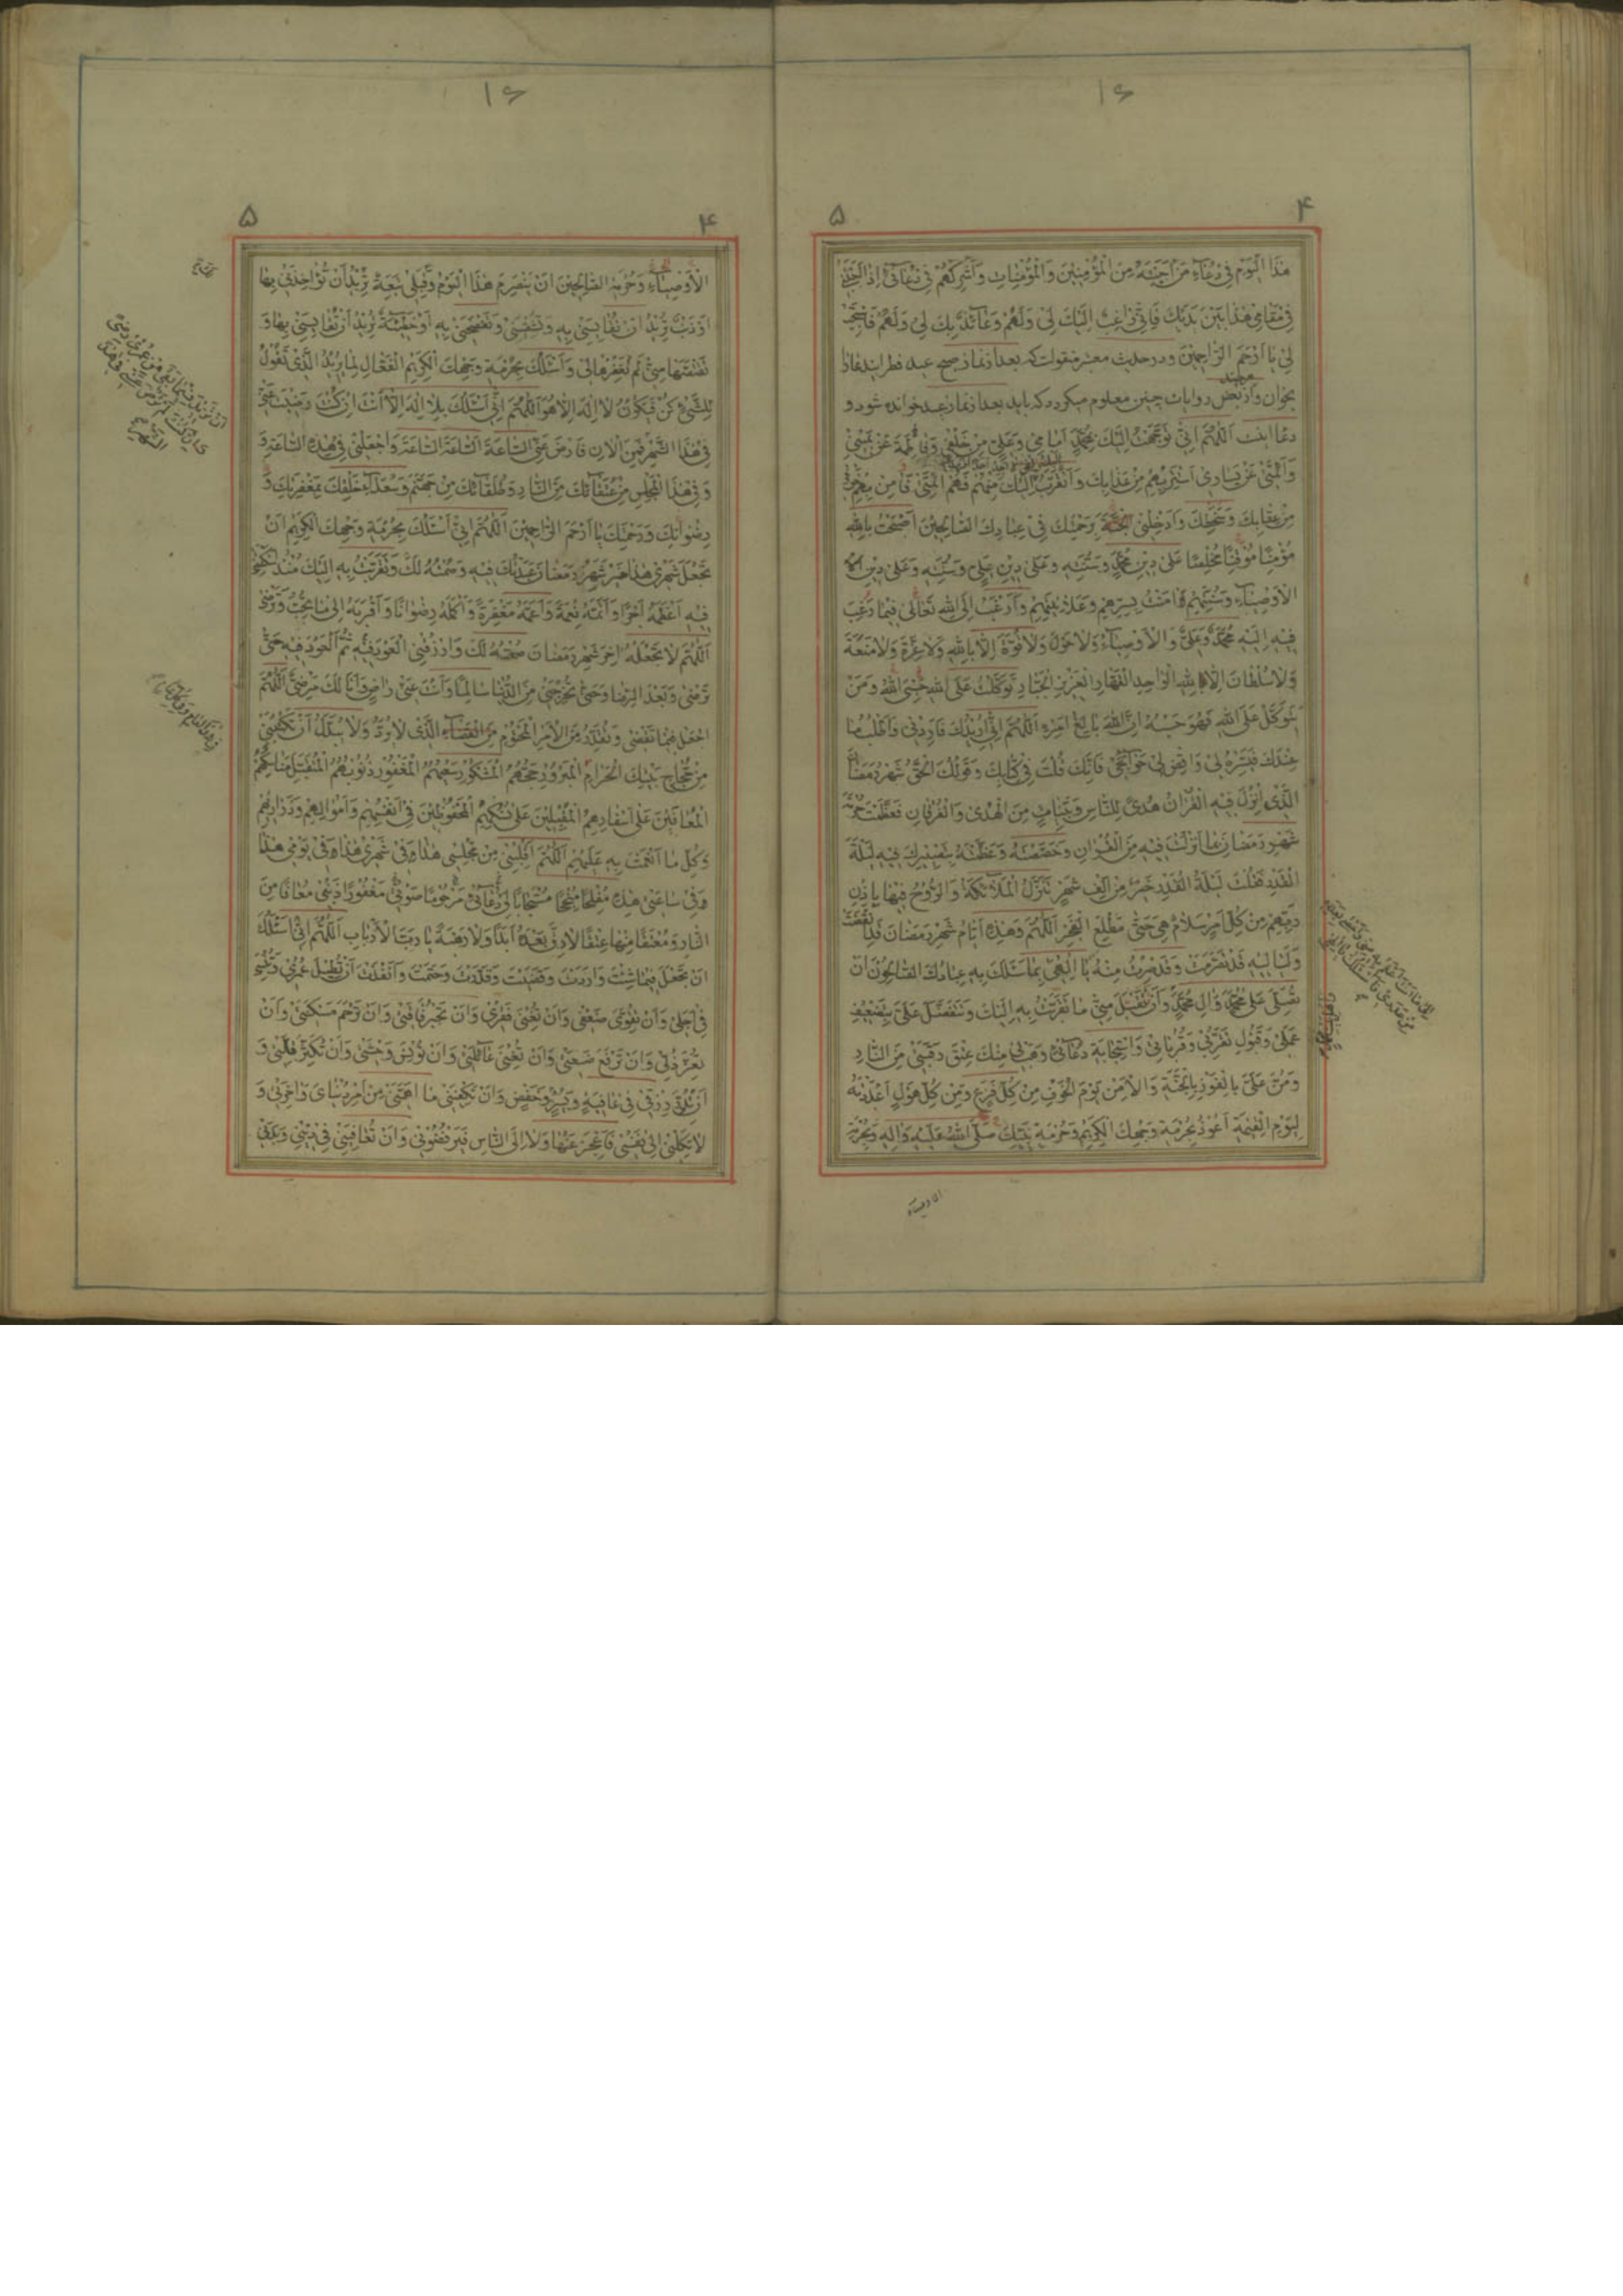 ۱۶
۴
۵
هذَا الْیَوْمِ فی دُعآءِ مَنْ اَجَبْتَهُ مِنَ الْمُؤْمِنینَ وَالْمُؤْمِناتِ وَاَشْرِکْهُمْ فی دُعآئی اِذا
فی مَقامی هذا بَیْنَ یَدَیْکَ فَاِنّی راغِبٌ اِلَیْکَ لی وَلَهُمْ وَعآئِذٌ بِکَ لی وَلَهُمْ فَاسْتَجِبْ
لی یا اَرْحَمَ الرّاحِمینَ و در حدیث معتبر منقولست که بعد از نماز صبح عید فطر این دعا را
بخوان و از بعض روایات چنین معلوم میگردد که باید بعد از نماز عید خوانده شود و
دعا اینست اَللّهُمَّ اِنّی تَوَجَّهْتُ اِلَیْکَ بِمُحَمَّدٍ اَمامی وَعَلِیٍّ مِنْ خَلْفی وَفاطِمَةَ عَنْ یَمینی
وَاَئِمَّتی عَنْ یَساری اَسْتَتِرُ بِهِمْ مِنْ عَذابِکَ وَاَتَقَرَّبُ اِلَیْکَ فَهُمْ اَئِمَّتی فَآمِنْ بِهِمْ خَوْفی
مِنْ عِقابِکَ وَسَخَطِکَ وَاَدْخِلْنی الْجَنَّةَ بِرَحْمَتِکَ فی عِبادِکَ الصّالِحینَ اَصْبَحْتُ بِاللّهِ
مُؤْمِنًا مُوقِنًا مُخْلِصًا عَلی دینِ مُحَمَّدٍ وَسُنَّتِهِ وَعَلی دینِ عَلِیٍّ وَسُنَّتِهِ وَعَلی دینِ
الْاَوْصِیآءِ وَسُنَّتِهِمْ آمَنْتُ بِسِرِّهِمْ وَعَلانِیَتِهِمْ وَاَرْغَبُ اِلَی اللّهِ تَعالی فیما رَغِبَ
فیهِ اِلَیْهِ مُحَمَّدٌ وَعَلِیٌّ وَالْاَوْصِیآءُ وَلا حَوْلَ وَلا قُوَّةَ اِلّا بِاللّهِ وَلا عِزَّةَ وَلا مَنَعَةَ
وَلا سُلْطانَ اِلّا لِلّهِ الْواحِدِ الْقَهّارِ الْعَزیزِ الْجَبّارِ تَوَکَّلْتُ عَلَی اللّهِ حَسْبِیَ اللّهُ وَمَنْ
یَتَوَکَّلْ عَلَی اللّهِ فَهُوَ حَسْبُهُ اِنَّ اللّهَ بالِغُ اَمْرِهِ اَللّهُمَّ اِنّی اُریدُکَ فَاَرِدْنی وَاَطْلُبُ ما
عِنْدَکَ فَیَسِّرْهُ لی وَاقْضِ لی حَوآئِجی فَاِنَّکَ قُلْتَ فی کِتابِکَ وَقَوْلُکَ الْحَقُّ شَهْرُ رَمَضانَ
الَّذی اُنْزِلَ فیهِ الْقُرْآنُ هُدًی لِلنّاسِ وَبَیِّناتٍ مِنَ الْهُدی وَالْفُرْقانِ فَعَظَّمْتَ حُرْمَةَ
شَهْرِ رَمَضانَ بِما اَنْزَلْتَ فیهِ مِنَ الْقُرْآنِ وَخَصَصْتَهُ وَعَظَّمْتَهُ بِتَصْییرِکَ فیهِ لَیْلَةَ
الْقَدْرِ فَقُلْتَ لَیْلَةُ الْقَدْرِ خَیْرٌ مِنْ اَلْفِ شَهْرٍ تَنَزَّلُ الْمَلآئِکَةُ وَالرُّوحُ فیها بِاِذْنِ
رَبِّهِمْ مِنْ کُلِّ اَمْرٍ سَلامٌ هِیَ حَتّی مَطْلَعِ الْفَجْرِ اَللّهُمَّ وَهذِهِ اَیّامُ شَهْرِ رَمَضانَ قَدِ انْقَضَتْ
وَلَیالیهِ قَدْ تَصَرَّمَتْ وَقَدْ صِرْتُ مِنْهُ یا اِلهی بِما سَئَلَکَ بِهِ عِبادُکَ الصّالِحُونَ اَنْ
تُصَلِّیَ عَلی مُحَمَّدٍ وَآلِ مُحَمَّدٍ وَاَنْ تَقْبَلَ مِنّی ما تَقَرَّبْتُ بِهِ اِلَیْکَ وَتَتَفَضَّلَ عَلَیَّ بِتَضْعیفِ
عَمَلی وَقَبُولِ تَقَرُّبی وَقُرُباتی وَاسْتِجابَةِ دُعآئی وَهَبْ لی مِنْکَ عِتْقَ رَقَبَتی مِنَ النّارِ
وَمُنَّ عَلَیَّ بِالْفَوْزِ بِالْجَنَّةِ وَالْاَمْنِ یَوْمَ الْخَوْفِ مِنْ کُلِّ فَزَعٍ وَمِنْ کُلِّ هَوْلٍ اَعْدَدْتَهُ
لِیَوْمِ الْقِیمَةِ اَعُوذُ بِحُرْمَةِ وَجْهِکَ الْکَریمِ وَحُرْمَةِ نَبِیِّکَ صَلَّی اللّهُ عَلَیْهِ وَآلِهِ وَبِحُرْمَةِ
الاوصیاء
۱۶
۴
۵
الْاَوْصِیآءِ وَحُرْمَةِ الصّالِحینَ اَنْ یَنْصَرِمَ هذَا الْیَوْمُ وَقِبَلی تَبِعَةٌ تُریدُ اَنْ تُؤاخِذَنی بِها
اَوْ ذَنْبٌ تُریدُ اَنْ تُقایِسَنی بِهِ وَتُشْقِیَنی وَتَفْضَحَنی بِهِ اَوْ خَطیئَةٌ تُریدُ اَنْ تُقایِسَنی بِها وَ
تَقْتَصَّها مِنّی لَمْ تَغْفِرْها لی وَاَسْئَلُکَ بِحُرْمَةِ وَجْهِکَ الْکَریمِ الْفَعّالِ لِما یُریدُ الَّذی تَقُولُ
لِلشَّیْءِ کُنْ فَیَکُونُ لا اِلهَ اِلّا هُوَ اَللّهُمَّ اِنّی اَسْئَلُکَ بِلا اِلهَ اِلّا اَنْتَ اِنْ کُنْتَ رَضیتَ عَنّی
فی هذَا الشَّهْرِ فَمِنَ الْآنِ فَارْضَ عَنّی السّاعَةَ السّاعَةَ السّاعَةَ وَاجْعَلْنی فی هذِهِ السّاعَةِ وَ
وَفی هذَا الْمَجْلِسِ مِنْ عُتَقآئِکَ مِنَ النّارِ وَطُلَقآئِکَ مِنْ جَهَنَّمَ وَسُعَدآءِ خَلْقِکَ بِمَغْفِرَتِکَ وَ
رِضْوانِکَ وَرَحْمَتِکَ یا اَرْحَمَ الرّاحِمینَ اَللّهُمَّ اِنّی اَسْئَلُکَ بِحُرْمَةِ وَجْهِکَ الْکَریمِ اَنْ
تَجْعَلَ شَهْری هذا خَیْرَ شَهْرِ رَمَضانَ عَبَدْتُکَ فیهِ وَصُمْتُهُ لَکَ وَتَقَرَّبْتُ بِهِ اِلَیْکَ مُنْذُ
فیهِ اَعْظَمَهُ اَجْرًا وَاَتَمَّهُ نِعْمَةً وَاَعَمَّهُ مَغْفِرَةً وَاَکْمَلَهُ رِضْوانًا وَاَقْرَبَهُ اِلی ما تُحِبُّ وَتَرْضی
اَللّهُمَّ لا تَجْعَلْهُ آخِرَ شَهْرِ رَمَضانَ صُمْتُهُ لَکَ وَارْزُقْنِی الْعَوْدَ فیهِ ثُمَّ الْعَوْدَ فیهِ حَتّی
تَرْضی وَبَعْدَ الرِّضا وَحَتّی تُخْرِجَنی مِنَ الدُّنْیا سالِمًا وَاَنْتَ عَنّی راضٍ وَاَنَا لَکَ مَرْضِیٌّ اَللّهُمَّ
اجْعَلْ فیما تَقْضی وَتُقَدِّرُ مِنَ الْاَمْرِ الْمَحْتُومِ مِنَ الْقَضآءِ الَّذی لا یُرَدُّ وَلا یُبَدَّلُ اَنْ تَکْتُبَنی
مِنْ حُجّاجِ بَیْتِکَ الْحَرامِ الْمَبْرُورِ حَجُّهُمُ الْمَشْکُورِ سَعْیُهُمُ الْمَغْفُورِ ذُنُوبُهُمُ الْمُتَقَبَّلِ مَناسِکُهُمُ
الْمُعافَیْنَ عَلی اَسْفارِهِمُ الْمُقْبِلینَ عَلی نُسُکِهِمُ الْمَحْفُوظینَ فی اَنْفُسِهِمْ وَاَمْوالِهِمْ وَذَراریهِمْ
وَکُلِّ ما اَنْعَمْتَ بِهِ عَلَیْهِمْ اَللّهُمَّ اقْلِبْنی مِنْ مَجْلِسی هذا وَفی شَهْری هذا وَفی یَوْمی هذا
وَفی ساعَتی هذِهِ مُفْلِحًا مُنْجِحًا مُسْتَجابًا لی دُعآئی مَرْحُومًا صَوْتی مَغْفُورًا ذَنْبی مُعافًا مِنَ
النّارِ وَمُعْتَقًا مِنْها عِتْقًا لا رِقَّ بَعْدَهُ اَبَدًا وَلا رَهْبَةَ یا رَبَّ الْاَرْبابِ اَللّهُمَّ اِنّی اَسْئَلُکَ
اَنْ تَجْعَلَ فیما شِئْتَ وَاَرَدْتَ وَقَضَیْتَ وَقَدَّرْتَ وَحَتَمْتَ وَاَنْفَذْتَ اَنْ تُطیلَ عُمْری وَتُنْسِئَ
فی اَجَلی وَاَنْ تُقَوِّیَ ضَعْفی وَاَنْ تُغْنِیَ فَقْری وَاَنْ تَجْبُرَ فاقَتی وَاَنْ تَرْحَمَ مَسْکَنَتی وَاَنْ
تُعِزَّ ذُلّی وَاَنْ تَرْفَعَ ضَعَتی وَاَنْ تُغْنِیَ عآئِلَتی وَاَنْ تُونِسَ وَحْشَتی وَاَنْ تُکْثِرَ قِلَّتی وَ
اَنْ تُدِرَّ رِزْقی فی عافِیَةٍ وَیُسْرٍ وَخَفْضٍ وَاَنْ تَکْفِیَنی ما اَهَمَّنی مِنْ اَمْرِ دُنْیایَ وَآخِرَتی وَ
لا تَکِلْنی اِلی نَفْسی فَاَعْجِزَ عَنْها وَلا اِلَی النّاسِ فَیَرْفُضُونی وَاَنْ تُعافِیَنی فی دینی وَبَدَنی